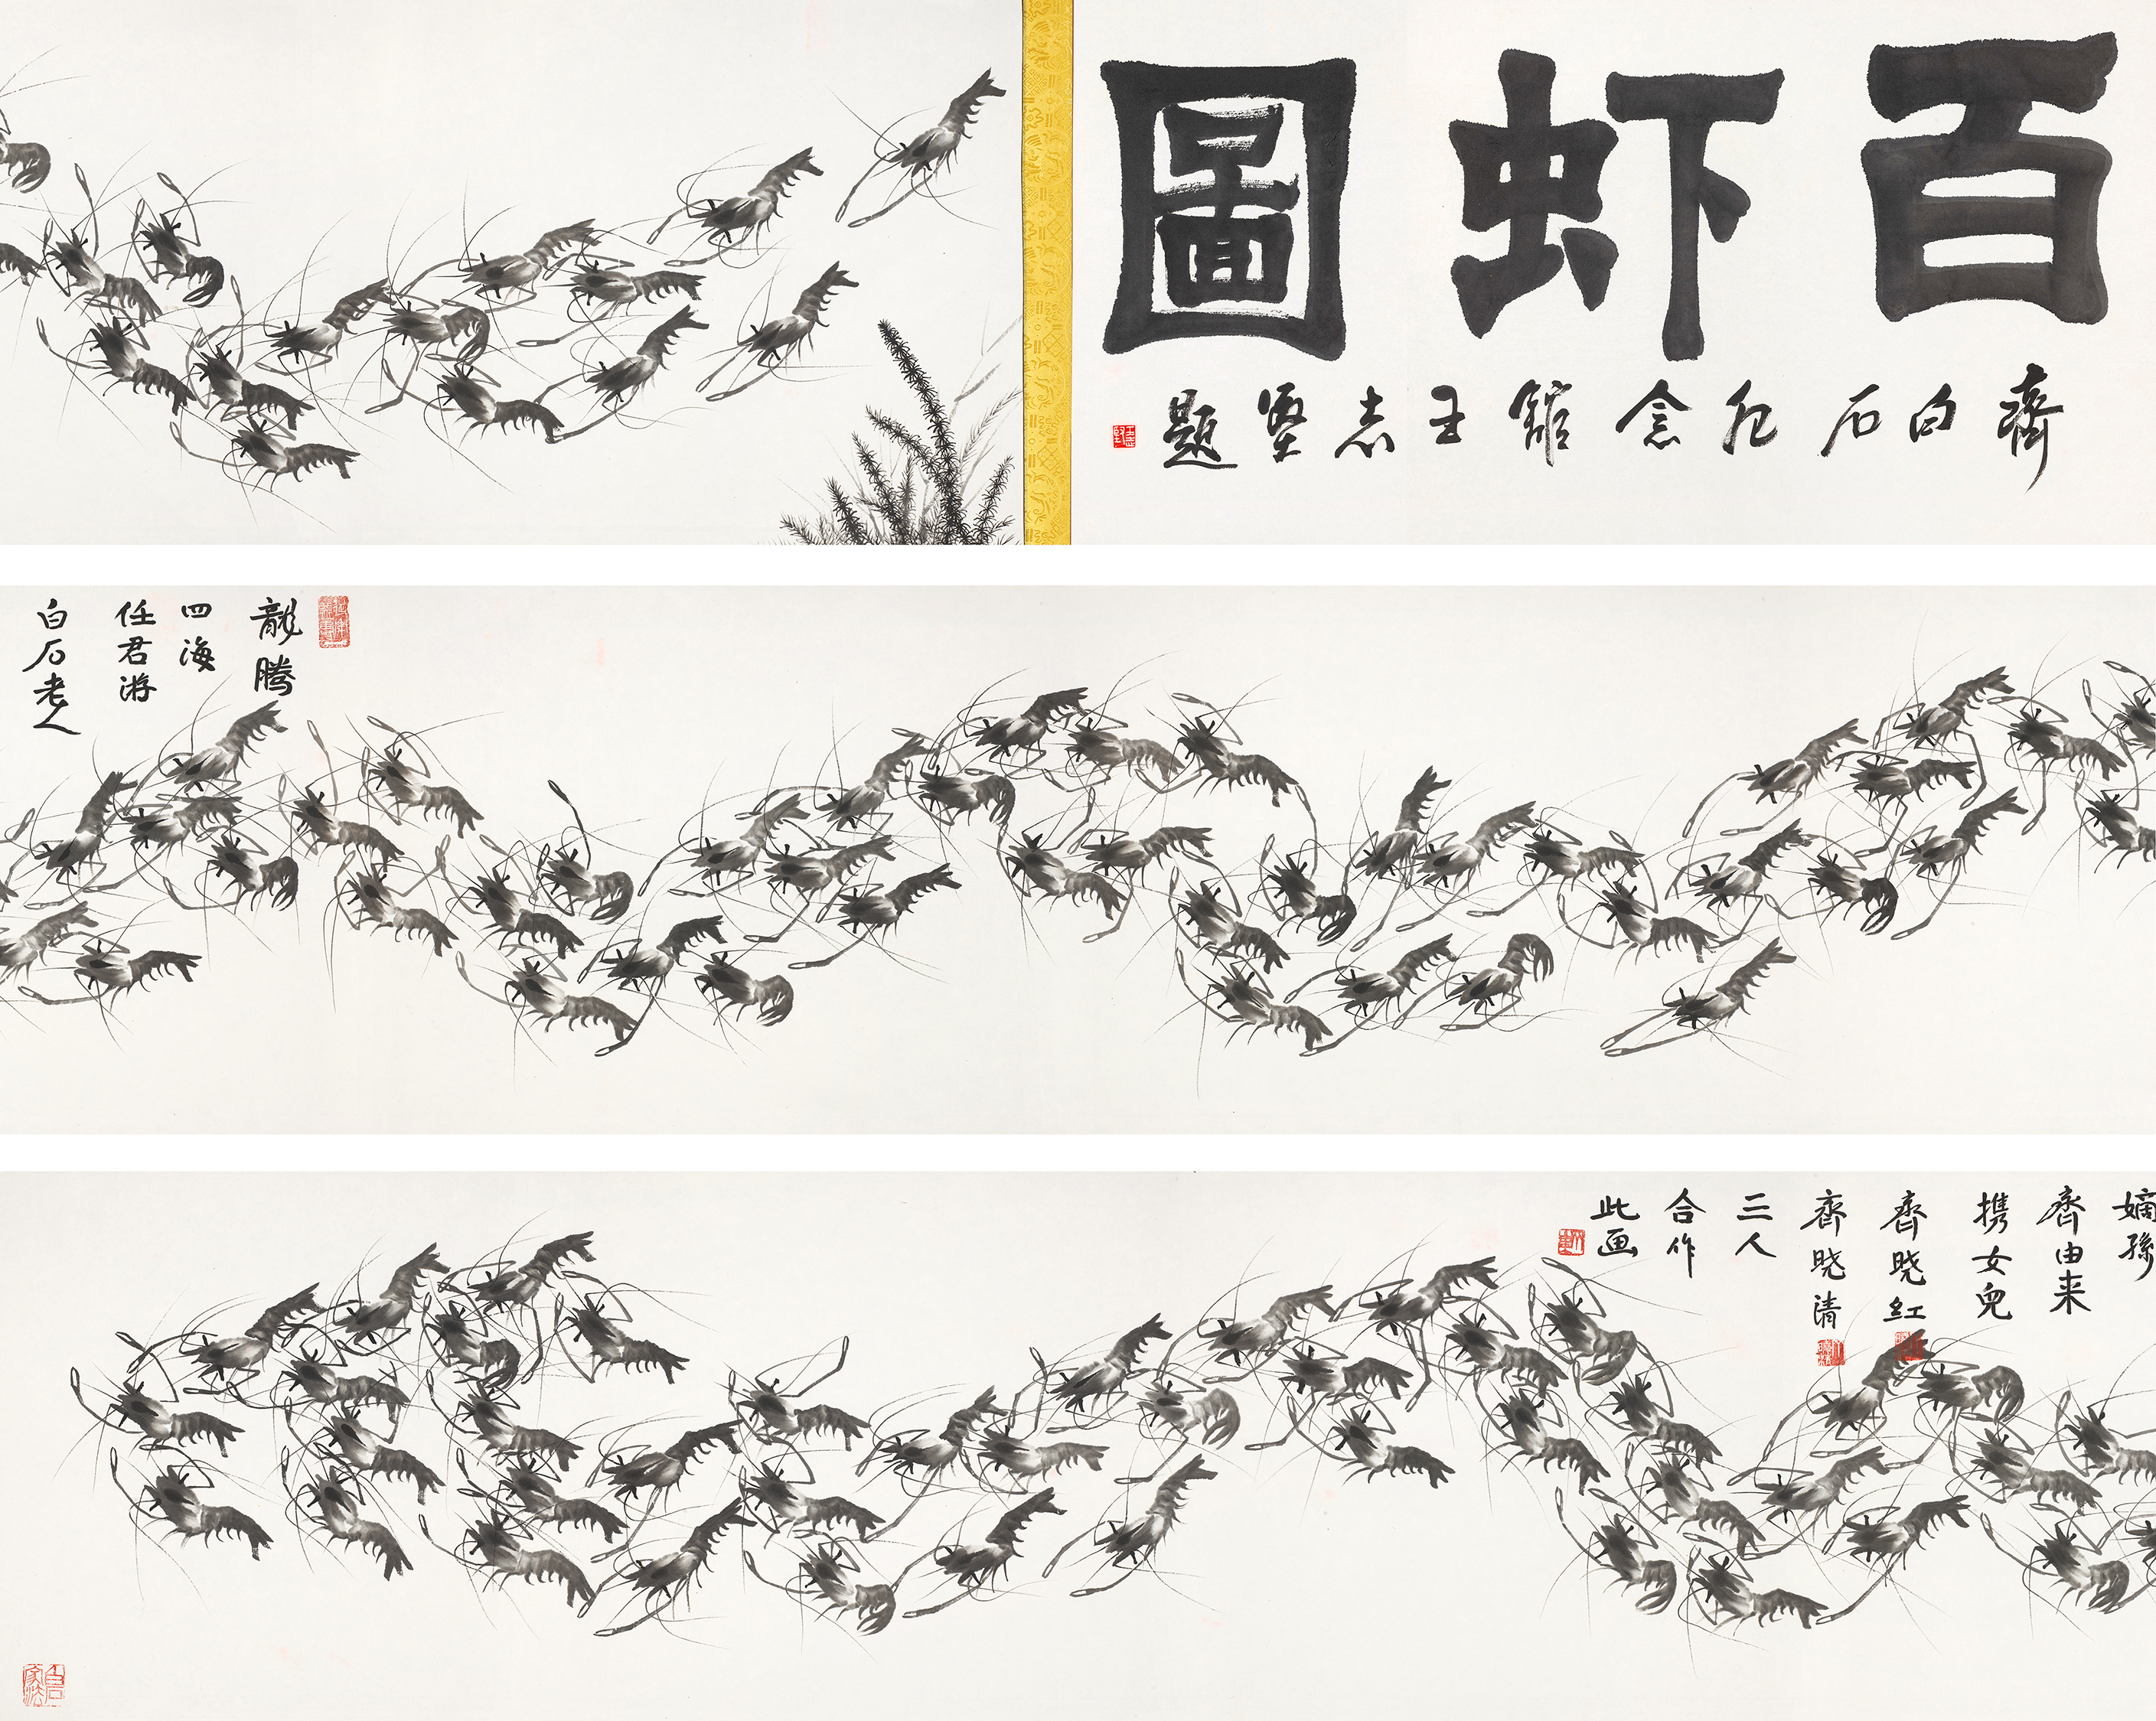 百虾圖
齊白石纪念館王志坚題
龍騰
四海
任君游
白石老人
嫡孫
齊由来
携女兒
齊晓红
齊晓清
三人
合作
此画